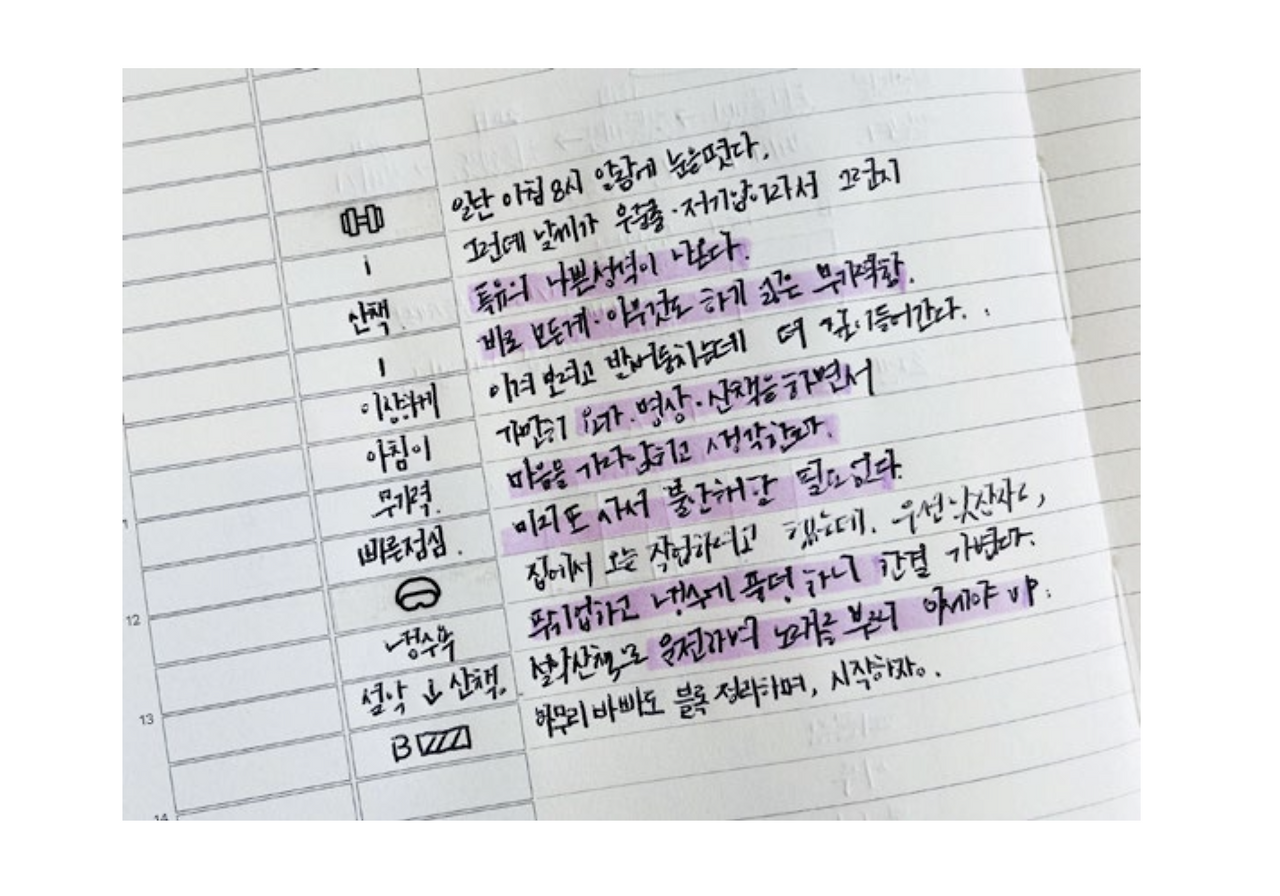 일단 아침 8시 알람에 눈을 떴다.
그런데 날씨가 우중충·저기압이라서 그런지
특유의 나쁜성격이 나온다.
산책
바로 모든게·아무것도 하기 싫은 무기력함.
이겨 보려고 발버둥치는데 더 깊이 들어간다.
이상하게
가만히 요가·명상·산책을 하면서
아침이
마음을 가라앉히고 생각한다.
무기력.
미리 또 사서 불안해할 필요없다.
빠른점심.
집에서 오늘 작업하려고 했는데, 우선
12
픽업하고 냉수에 풍덩 하니 한결 가볍다.
냉수욕
설악산책으로 운전하며 노래를 부르니 이제야 up.
설악 ↓ 산책.
13
아무리 바빠도 블록 정리하며, 시작하자.
B
14